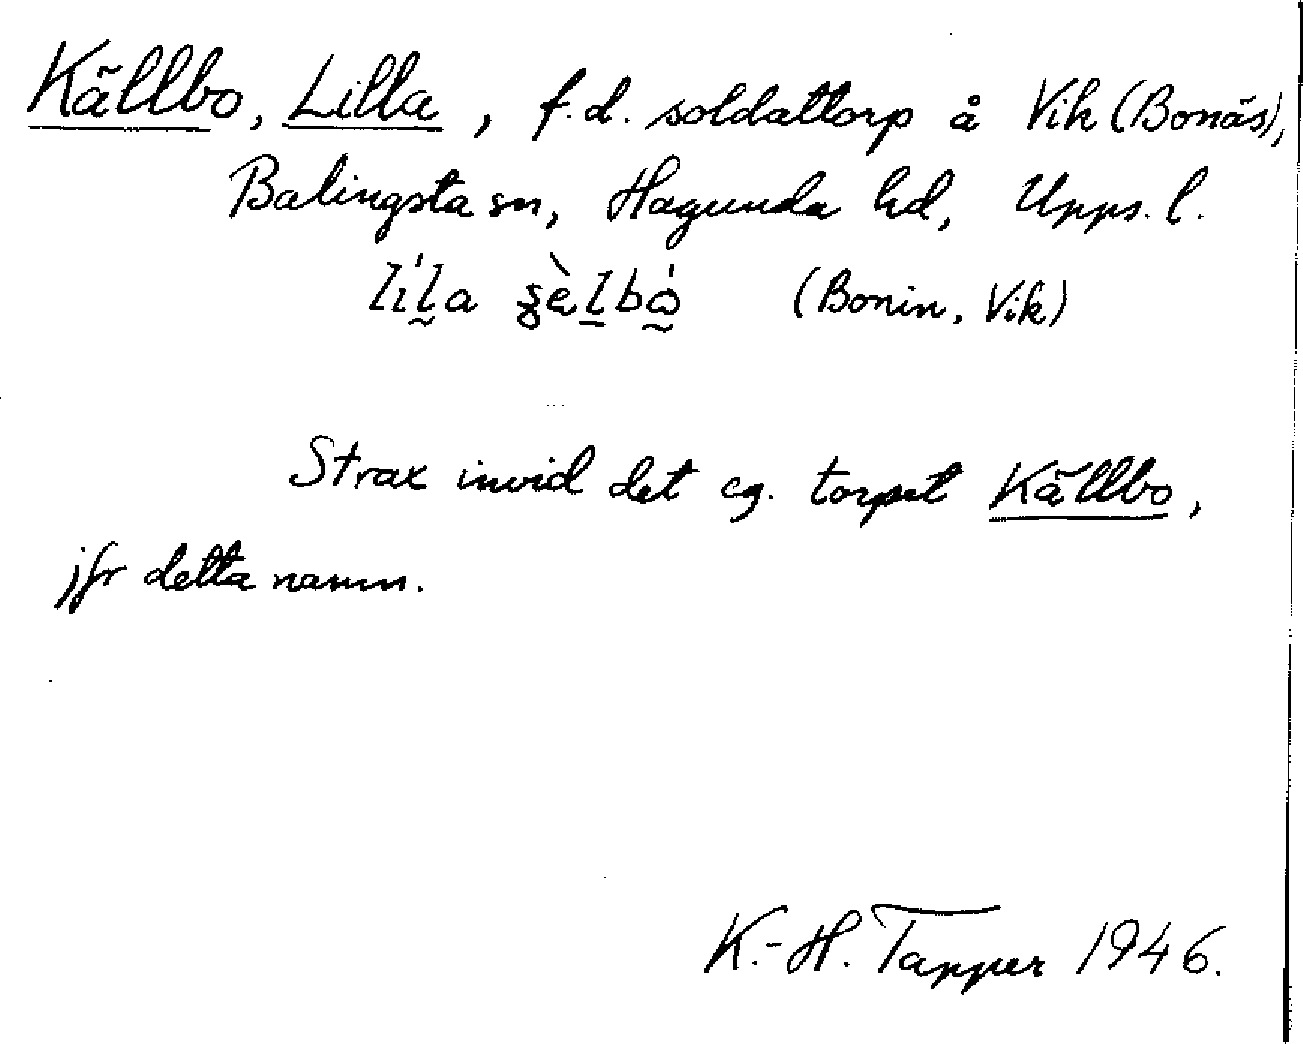 Källbo, Lilla, f.d. soldattorp å Vik (Bonäs),
Balingsta sn, Hagunda hd, Upps. l.
(Bonin, Vik)
Strax invid det eg. torpet Källbo,
jfr detta namn.
K.-H. Tapper 1946.